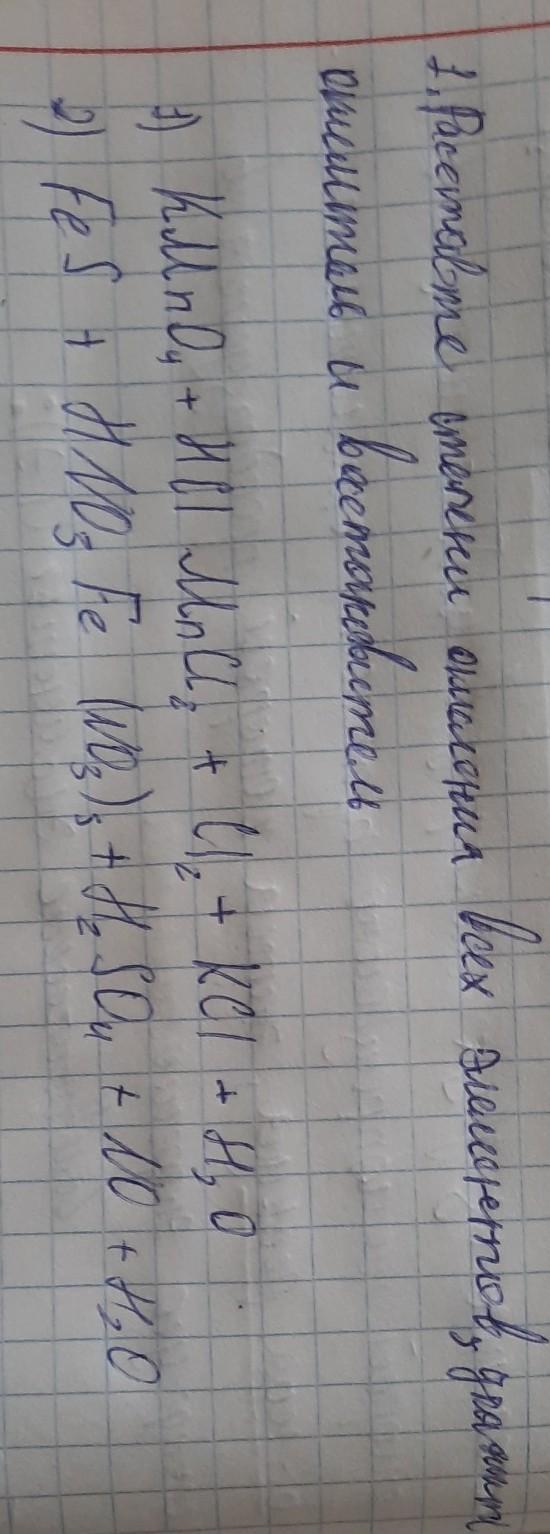 1. Расставте степени окисления всех элементов, укажит
окислитель и восстановитель
1) KMnO₄ + HCl MnCl₂ + Cl₂ + KCl + H₂O
2) FeS + HNO₃ Fe (NO₃)₃ + H₂SO₄ + NO + H₂O